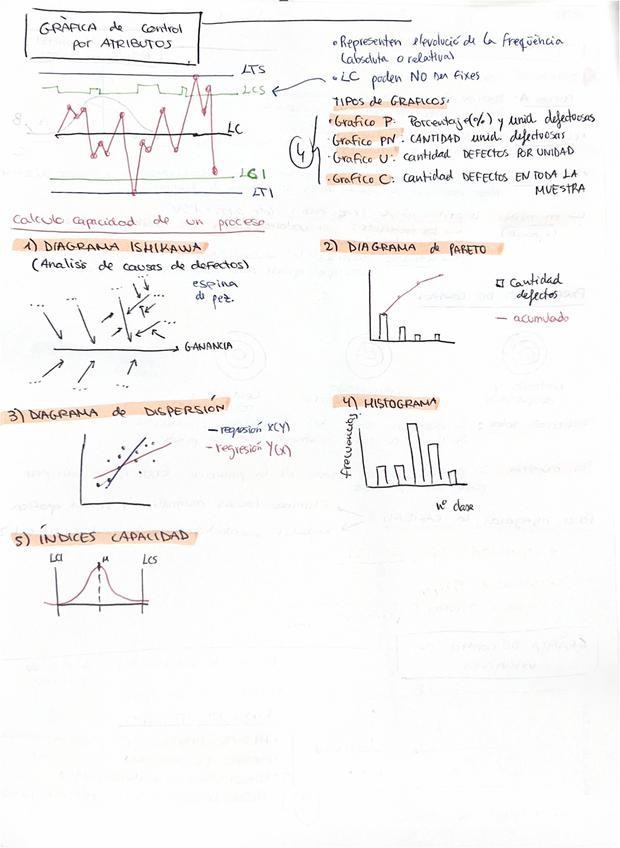 GRÀFICA de control
por ATRIBUTOS
LTS
LCS
LC
LCI
LTI
• Representen l'evolució de la freqüència
(absoluta o relativa)
• LC poden NO ser fixes
TIPOS de GRAFICOS:
4
• Grafico P: Porcentaje (%) y unid. defectuosas
• Grafico PN: CANTIDAD unid. defectuosas
• Grafico U: cantidad DEFECTOS POR UNIDAD
• Grafico C: cantidad DEFECTOS EN TODA LA
MUESTRA
Calculo capacidad de un proceso
1) DIAGRAMA ISHIKAWA
(Analisis de causas de defectos)
espina
de pez.
GANANCIA
2) DIAGRAMA de PARETO
Cantidad
defectos
acumulado
3) DIAGRAMA de DISPERSIÓN
regresión X(Y)
regresión Y(X)
4) HISTOGRAMA
frecuencia
nº clase
5) ÍNDICES CAPACIDAD
LCI
μ
LCS